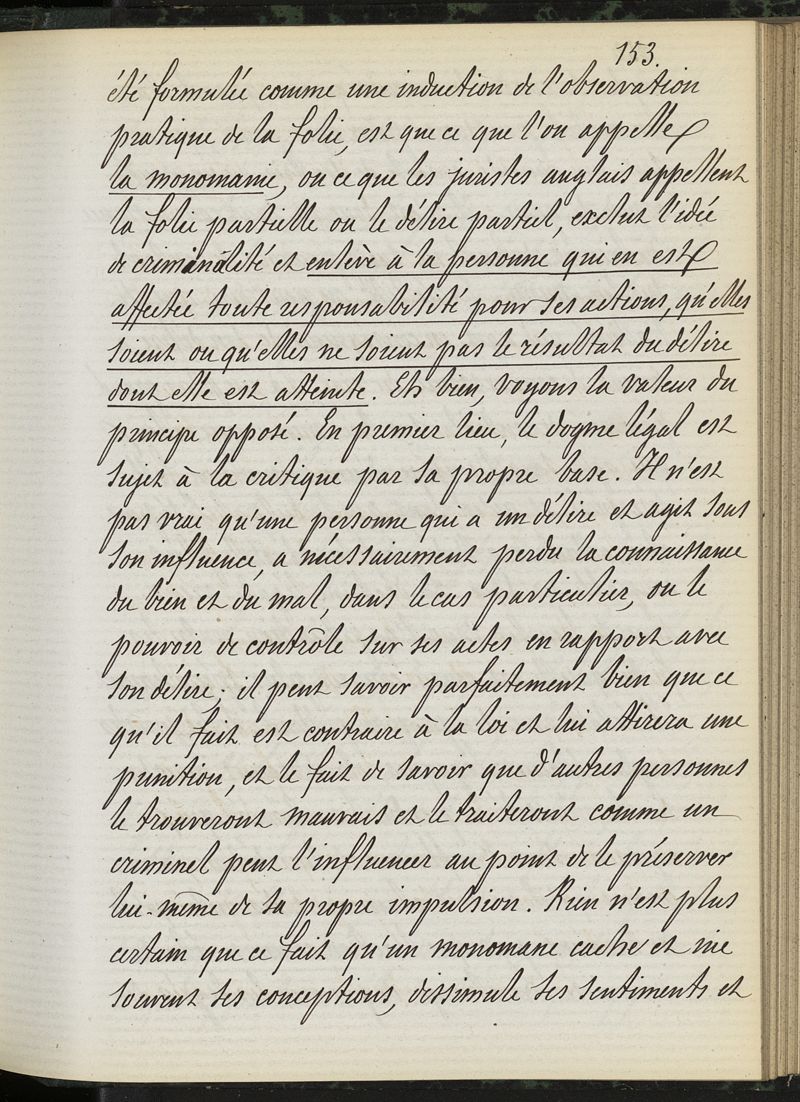 153.
été formulée comme une induction de l'observation
pratique de la folie, est que ce que l'on appelle
la monomanie, ou ce que les juristes anglais appellent
la folie partielle ou le délire partiel, exclut l'idée
de criminalité et enlève à la personne qui en est
affectée toute responsabilité pour ses actions, qu'elles
soient ou qu'elles ne soient pas le résultat du délire
dont elle est atteinte. Eh bien, voyons la valeur du
principe opposé. En premier lieu, le dogme légal est
sujet à la critique par sa propre base. Il n'est
pas vrai qu'une personne qui a un délire et agit sous
son influence, a nécessairement perdu la connaissance
du bien et du mal, dans le cas particulier, ou le
pouvoir de contrôle sur ses actes en rapport avec
son délire; il peut savoir parfaitement bien que ce
qu'il fait est contraire à la loi et lui attirera une
punition, et le fait de savoir que d'autres personnes
le trouveront mauvais et le traiteront comme un
criminel peut l'influencer au point de le préserver
lui-même de sa propre impulsion. Rien n'est plus
certain que ce fait qu'un monomane cache et nie
souvent ses conceptions, dissimule ses sentiments et